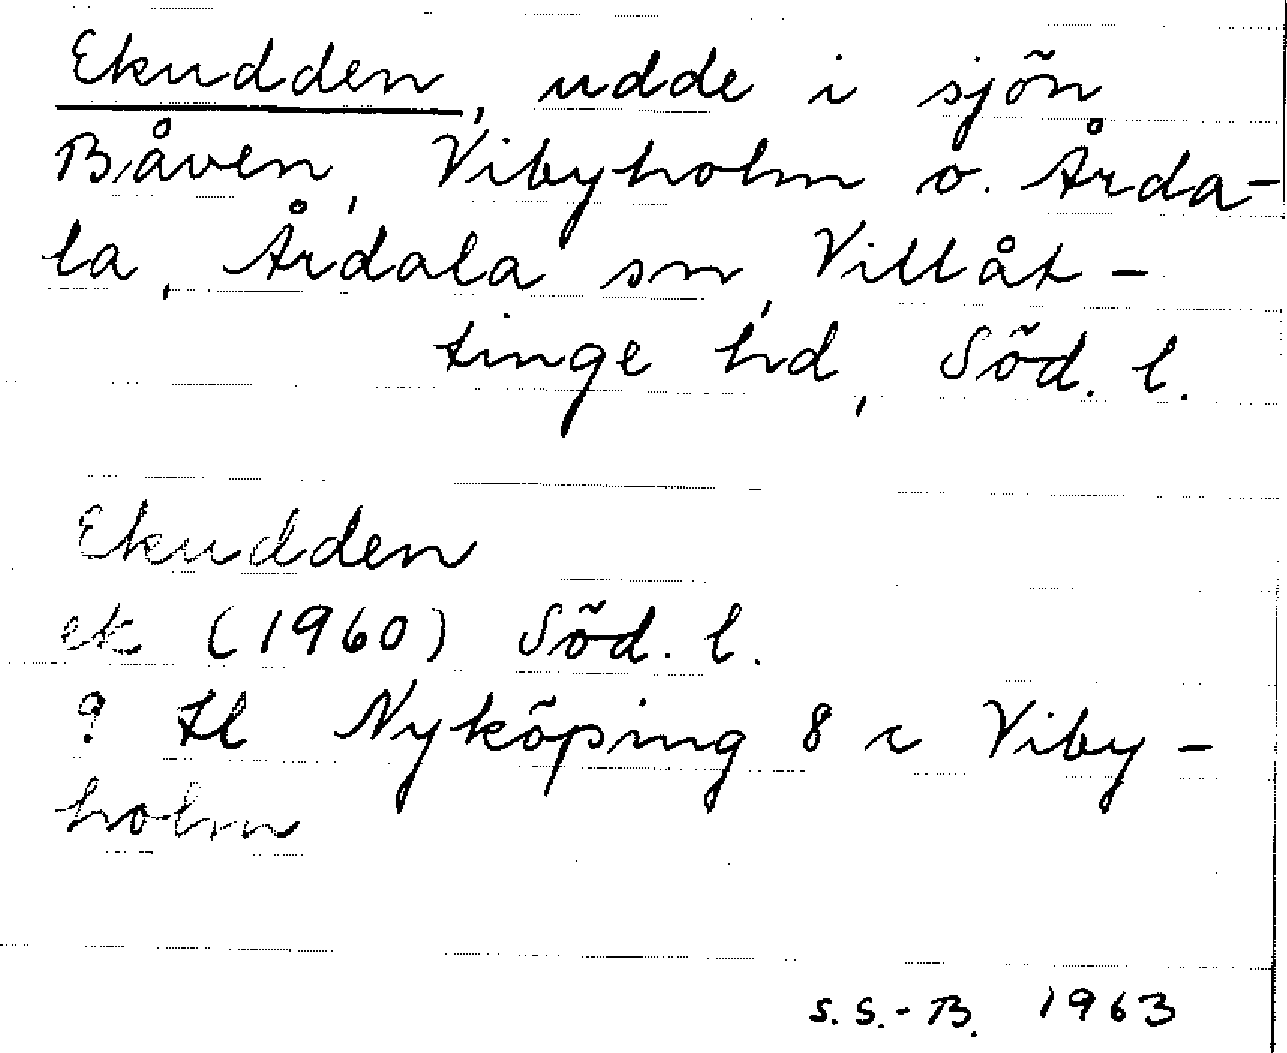 Ekudden, udde i sjön
Båven, Vibyholm o. Årda-
la, Årdala sn, Villåt-
tinge hd, Söd. l.
Ekudden
ek (1960) Söd. l.
? tl Nyköping 8 c Viby-
holm
S. S.-B. 1963